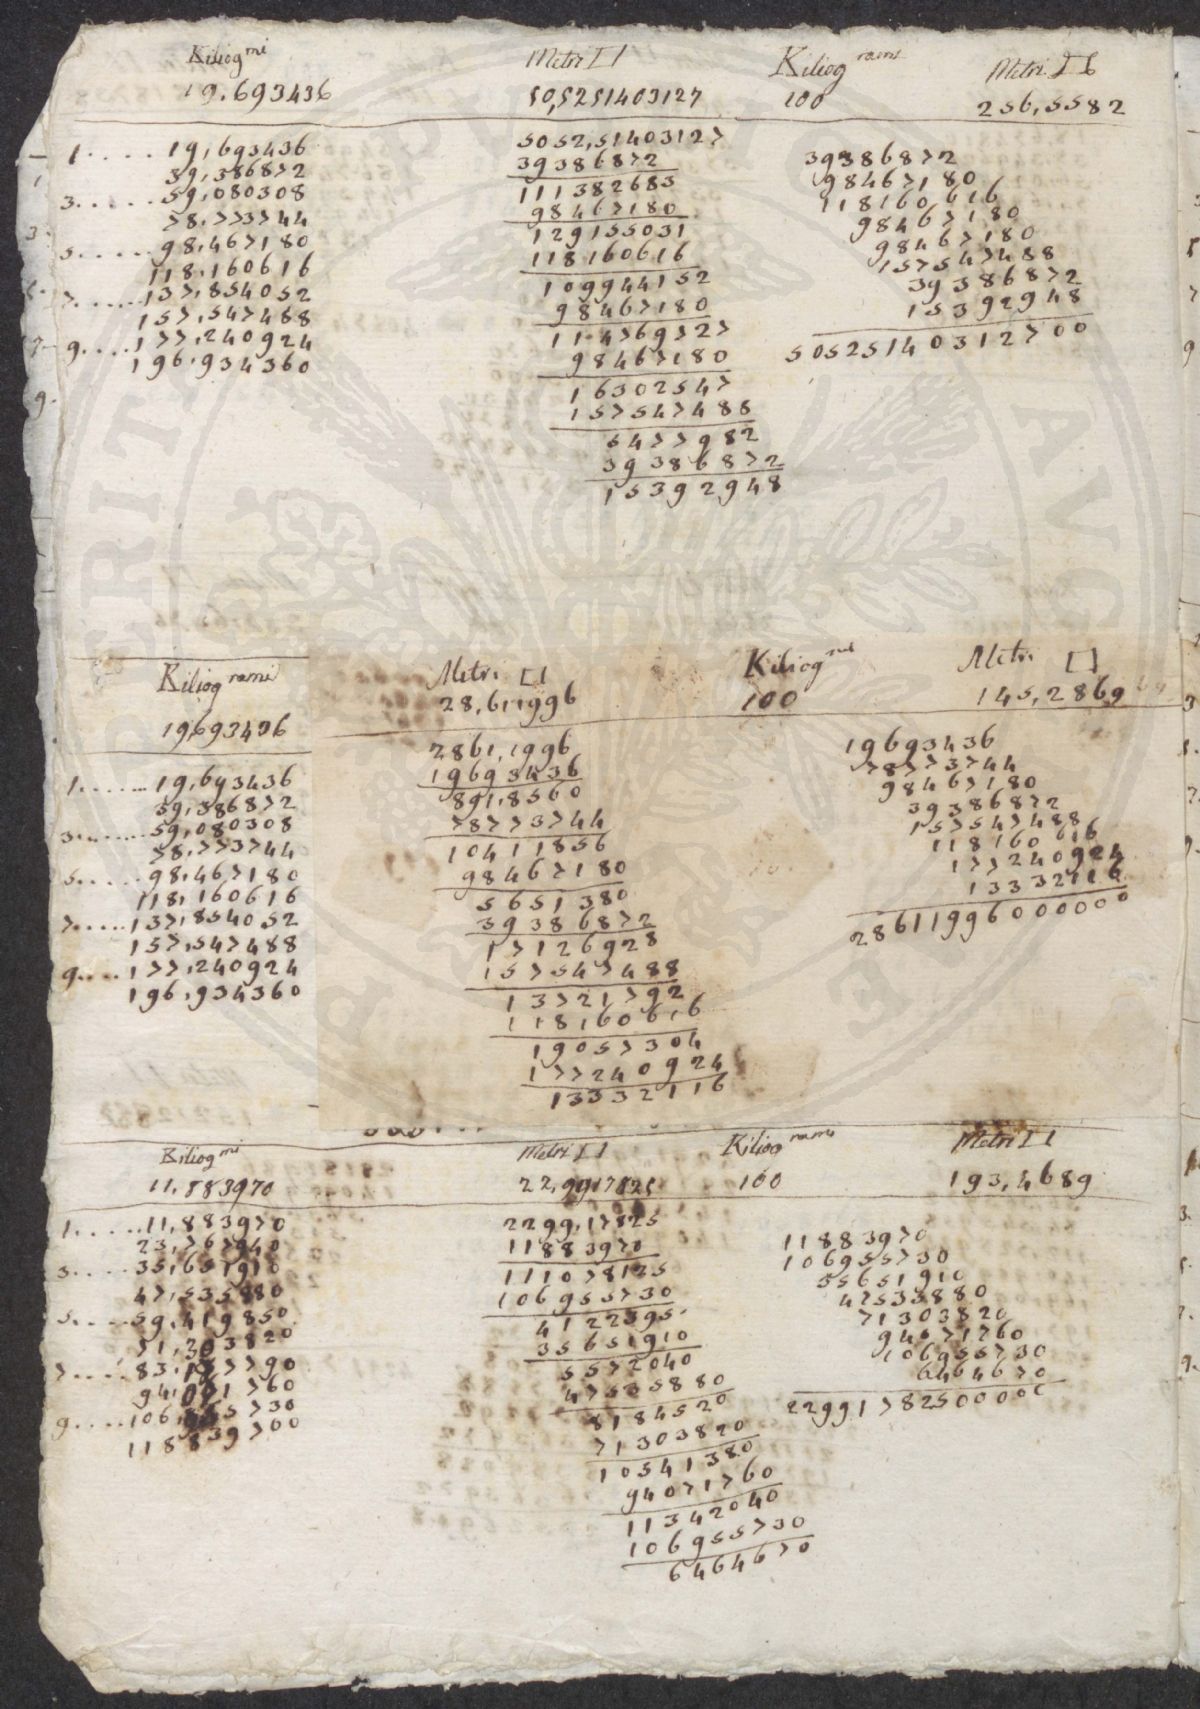 Kiliog mi
19.693436
Metri []
50,5251403127
Kiliog rami
100
Metri []
256,5582
1..... 19,693436
39,386872
3...... 59,080308
78.773744
5...... 98.467180
118.160616
7...... 137,854052
157,547488
9.... 177,240924
196.934360
5052,51403127
39386872
111382683
98467180
129155031
118160616
109944152
98467180
114769727
98467180
16302547
157547488
5477982
39386872
15392948
39386872
98467180
118160616
98467180
98467180
157547488
39386872
15392948
50525140312700
Kiliog rami
19,693436
Metri []
28,611996
Kiliog rami
100
Metri []
145,2869
1....... 19,693436
39,386872
3........ 59,080308
78,773744
5..... 98,467180
118,160616
7..... 137,854052
157,547488
9.... 177,240924
196,934360
2861,1996
19693436
891,8560
78773744
10411856
98467180
5651380
39386872
17126928
157547488
13721792
118160616
19057304
177240924
13332116
19693436
78773744
98467180
39386872
157547488
118160616
177240924
13332116
2861199600000
Kiliog mi
11,883970
Metri []
22,9917825
Kiliog rami
100
Metri []
193,4689
1..... 11,883970
23,767940
3.... 35,651910
47,535880
5.... 59,419850
71,303820
7.... 83,187790
94,071760
9.... 106,955730
118839700
2299,17825
11883970
111078125
106955730
4122395
35651910
5572040
47535880
8184520
71303820
10541380
94071760
11342040
106955730
6464670
11883970
106955730
35651910
47535880
71303820
94071760
106955730
6464670
2299178250000